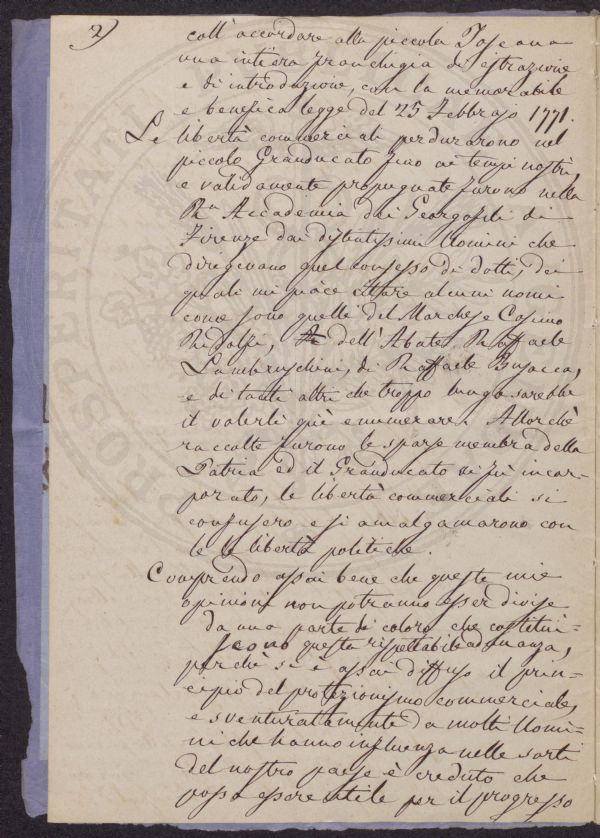 2)
coll'accordare alla piccola Toscana
una intiera franchigia di estrazione
e di introduzione, con la memorabile
e benefica legge del 25 Febbrajo 1771.
Le libertà commerciali perdurarono nel
piccolo Granducato fino ai tempi nostri,
e validamente propugnate furono nella
R.ª Accademia dei Georgofili di
Firenze dai distintissimi Uomini che
dirigevano quel consesso di dotti, dei
quali mi piace citare alcuni nomi
come sono quelli del Marchese Cosimo
Ridolfi, dell'Abate Raffaele
Lambruschini, di Raffaele Busacca,
e di tanti altri che troppo lungo sarebbe
il volerli quì enumerare. Allorchè
raccolte furono le sparse membra della
Patria ed il Granducato vi fù incor-
porato, le libertà commerciali si
confusero e si amalgamarono con
le le libertà politiche.
Comprendo assai bene che queste mie
opinioni non potranno esser divise
da una parte di coloro che costitui-
scono questa rispettabile adunanza,
perchè si è assai diffuso il prin-
cipio del protezionismo commerciale,
e sventuratamente da molti Uomi-
ni che hanno influenza nelle sorti
del nostro paese è creduto che
possa essere utile per il progresso
PROSPERITAT